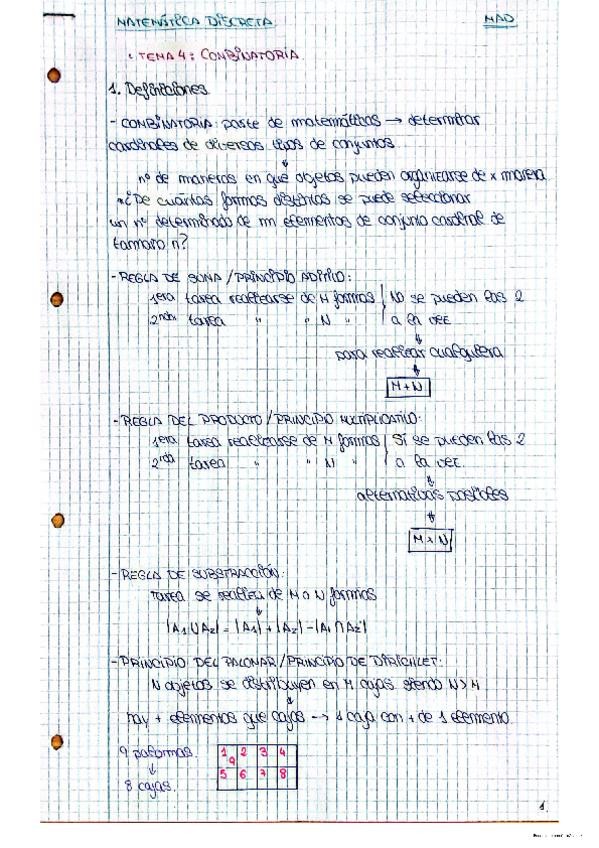 MATEMÁTICA DISCRETA MAD
• TEMA 4: COMBINATORIA
1. Definiciones
- COMBINATORIA: parte de matemáticas → determinar
cardinales de diversos tipos de conjuntos
↓
nº de maneras en que objetos pueden organizarse de x manera
¿De cuántas formas distintas se puede seleccionar
un nº determinado de m elementos de conjunto cardinal de
tamaño n?
- REGLA DE SUMA / PRINCIPIO ADITIVO:
1era tarea realizarse de M formas / NO se pueden las 2
2nda tarea " " N " / a la vez
↓
para realizar cualquiera
↓
M+N
- REGLA DEL PRODUCTO / PRINCIPIO MULTIPLICATIVO:
1era tarea realizarse de M formas / Sí se pueden las 2
2nda tarea " " N " / a la vez.
↓
alternativas posibles
↓
M x N
- REGLA DE SUBSTRACCIÓN:
tarea se realiza de M o N formas
↓
|A1 ∪ A2| = |A1| + |A2| - |A1 ∩ A2|
- PRINCIPIO DEL PALOMAR / PRINCIPIO DE DIRICHLET:
N objetos se distribuyen en M cajas siendo N > M
↓
hay + elementos que cajas → 1 caja con + de 1 elemento.
9 palomas. 1 2 3 4
↓ 9
8 cajas. 5 6 7 8
1.